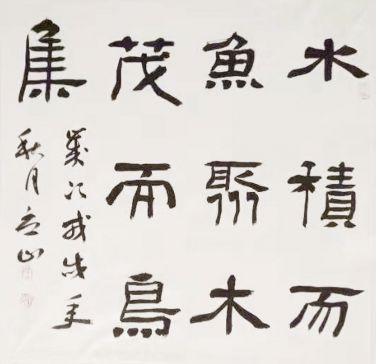 水積而
魚聚木
茂而鳥
集
歲次戊戌年
秋月山